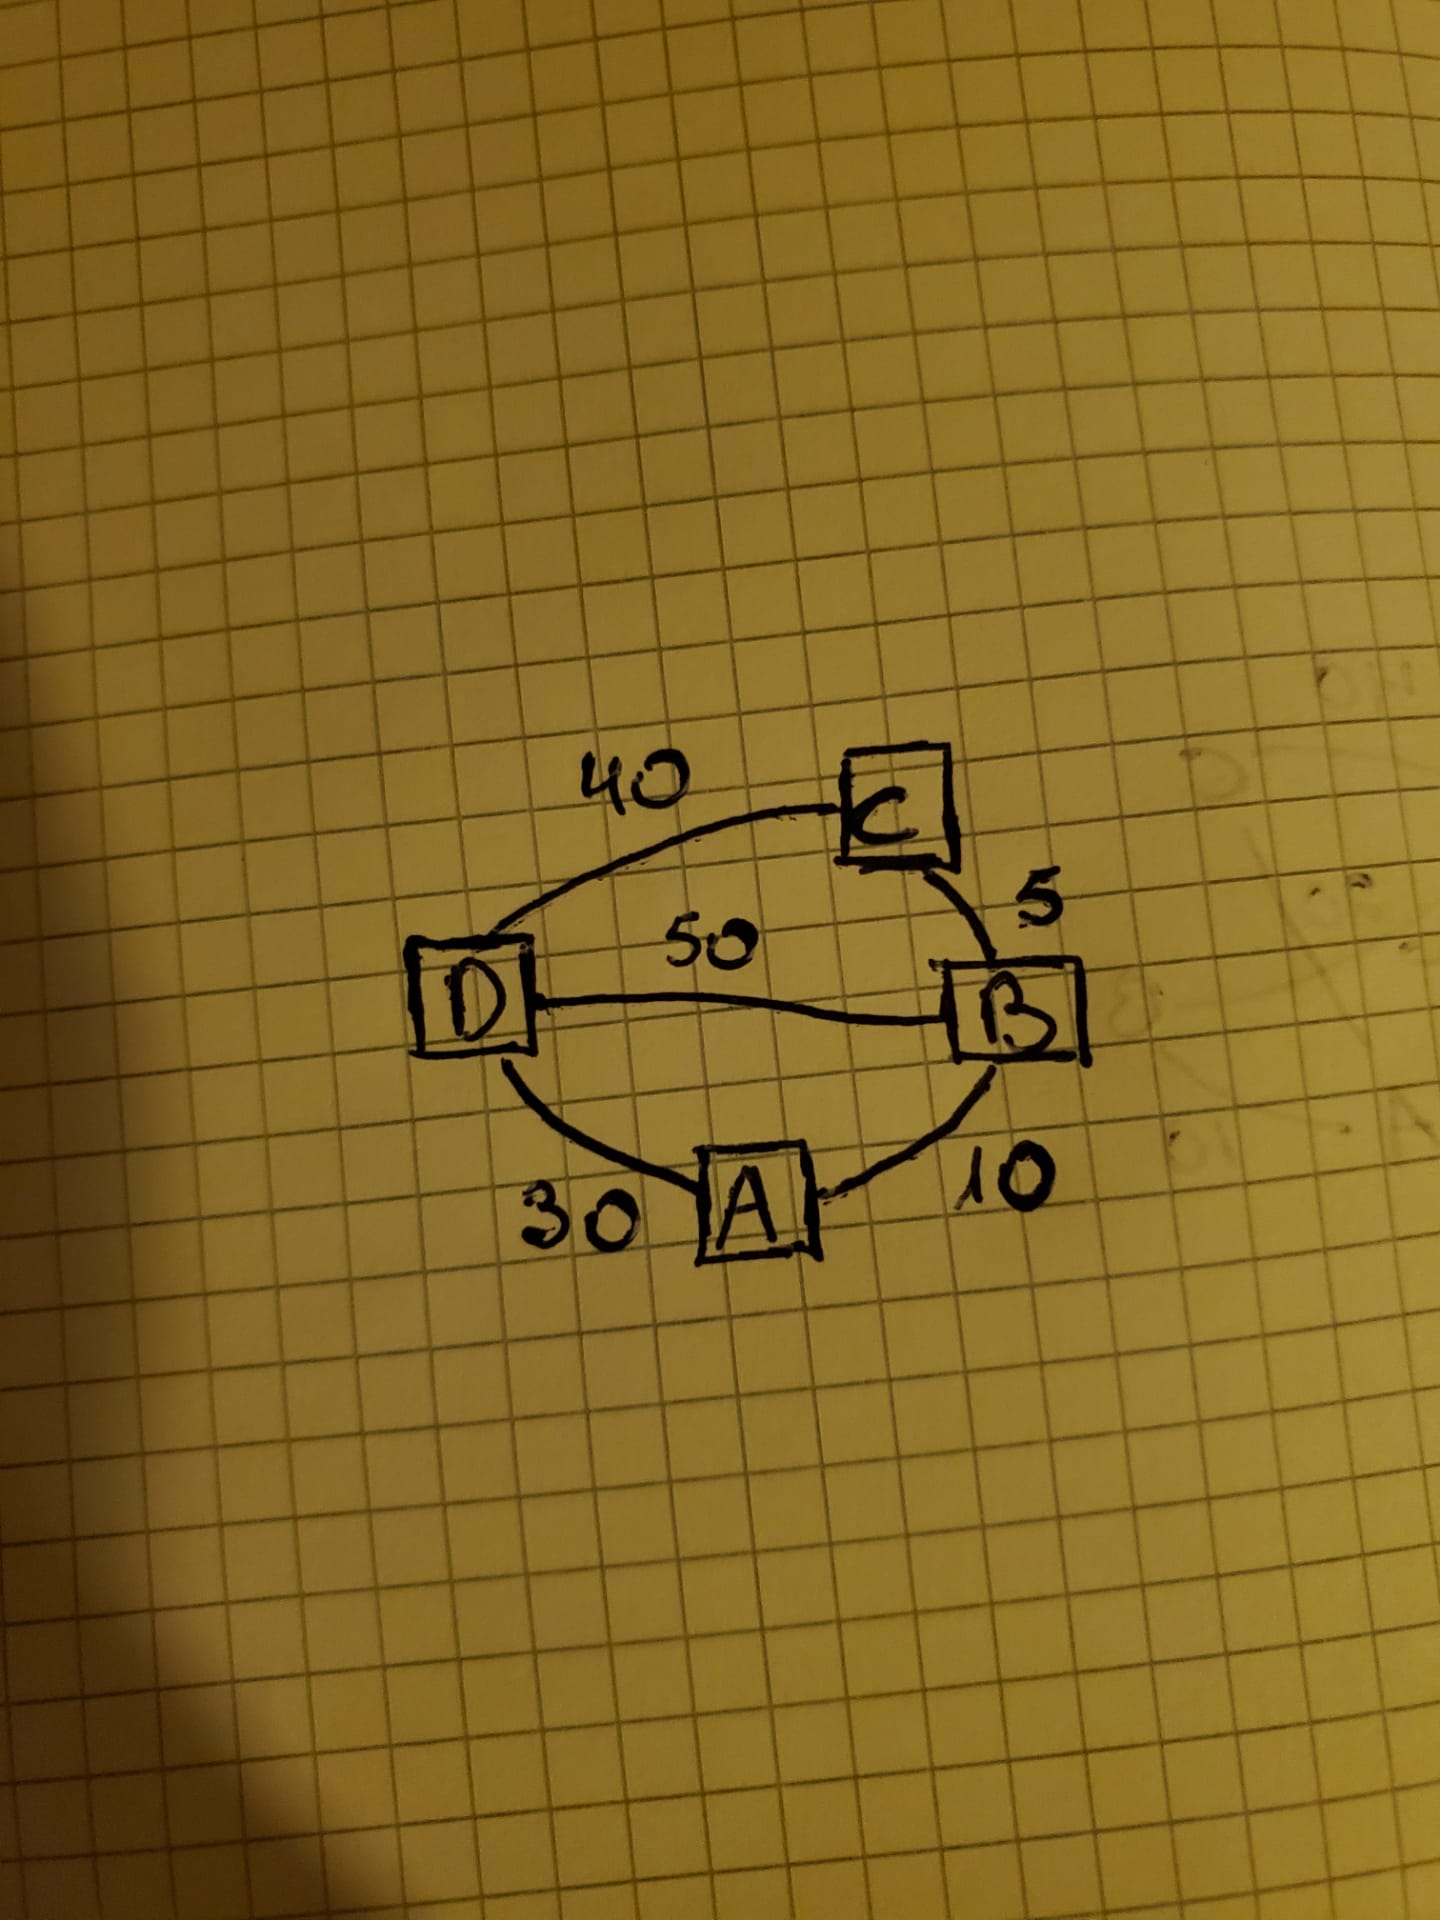 40
C
5
50
D
B
30
A
10